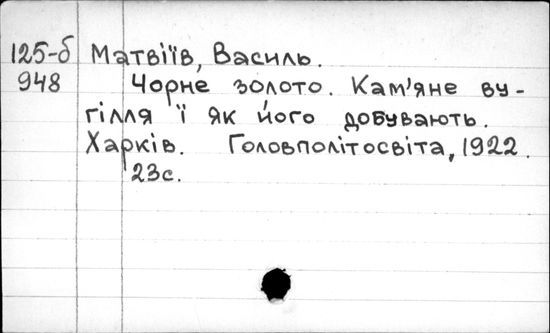 125-б Матвіїв, Василь.
948 Чорне золото. Кам'яне ву-
гілля ї як його добувають.
Харків. Головполітосвіта, 1922.
23с.